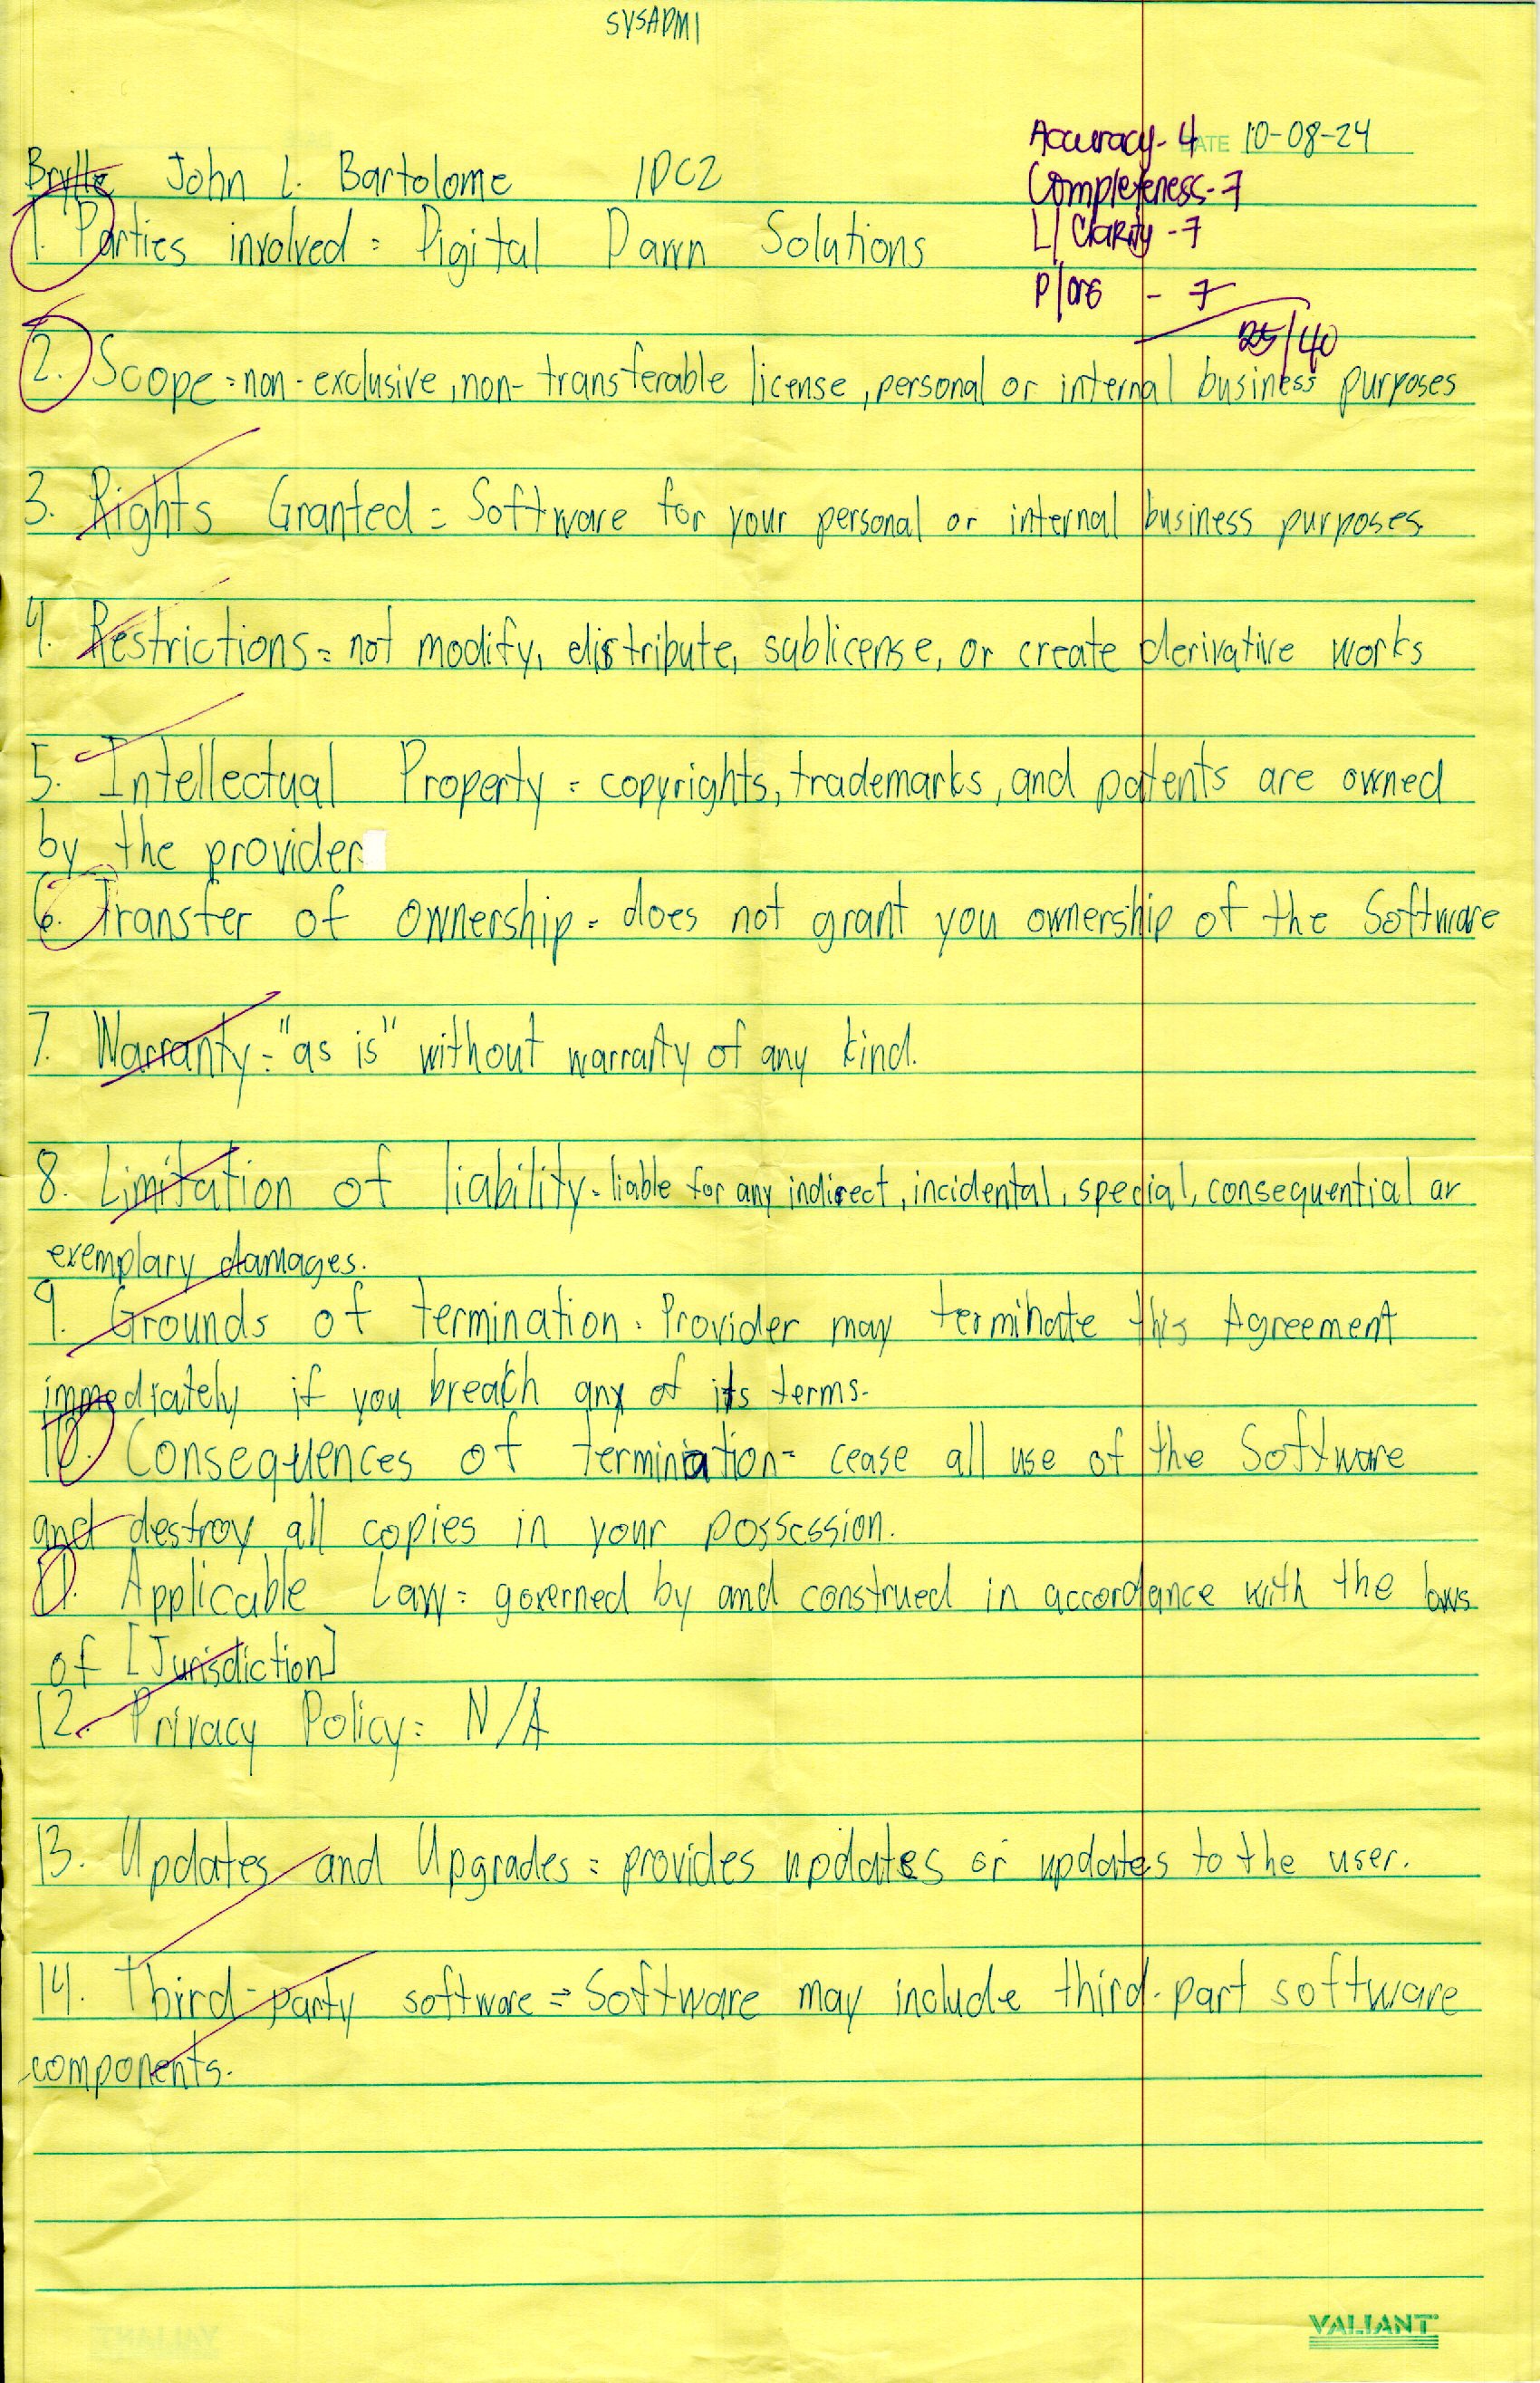 SYSADM1
Accuracy- 4 DATE 10-08-24
Brylle John L. Bartolome 1DC2
Completeness- 7
L/ Clarity - 7
1. Parties involved = Digital Dawn Solutions
P/org - 7
25/40
2. Scope = non-exclusive, non-transferable license, personal or internal business purposes
3. Rights Granted = Software for your personal or internal business purposes.
4. Restrictions = not modify, distribute, sublicense, or create derivative works
5. Intellectual Property = copyrights, trademarks, and patents are owned
by the provider
6. Transfer of ownership = does not grant you ownership of the Software
7. Warranty = "as is" without warranty of any kind.
8. Limitation of liability = liable for any indirect, incidental, special, consequential or
exemplary damages.
9. Grounds of termination = Provider may terminate this Agreement
immediately if you breach any of its terms.
10. Consequences of termination = cease all use of the Software
and destroy all copies in your possession.
11. Applicable Law = governed by and construed in accordance with the laws
of [Jurisdiction]
12. Privacy Policy = N/A
13. Updates and Upgrades = provides updates or updates to the user.
14. Third-party software = Software may include third-part software
components.
VALIANT